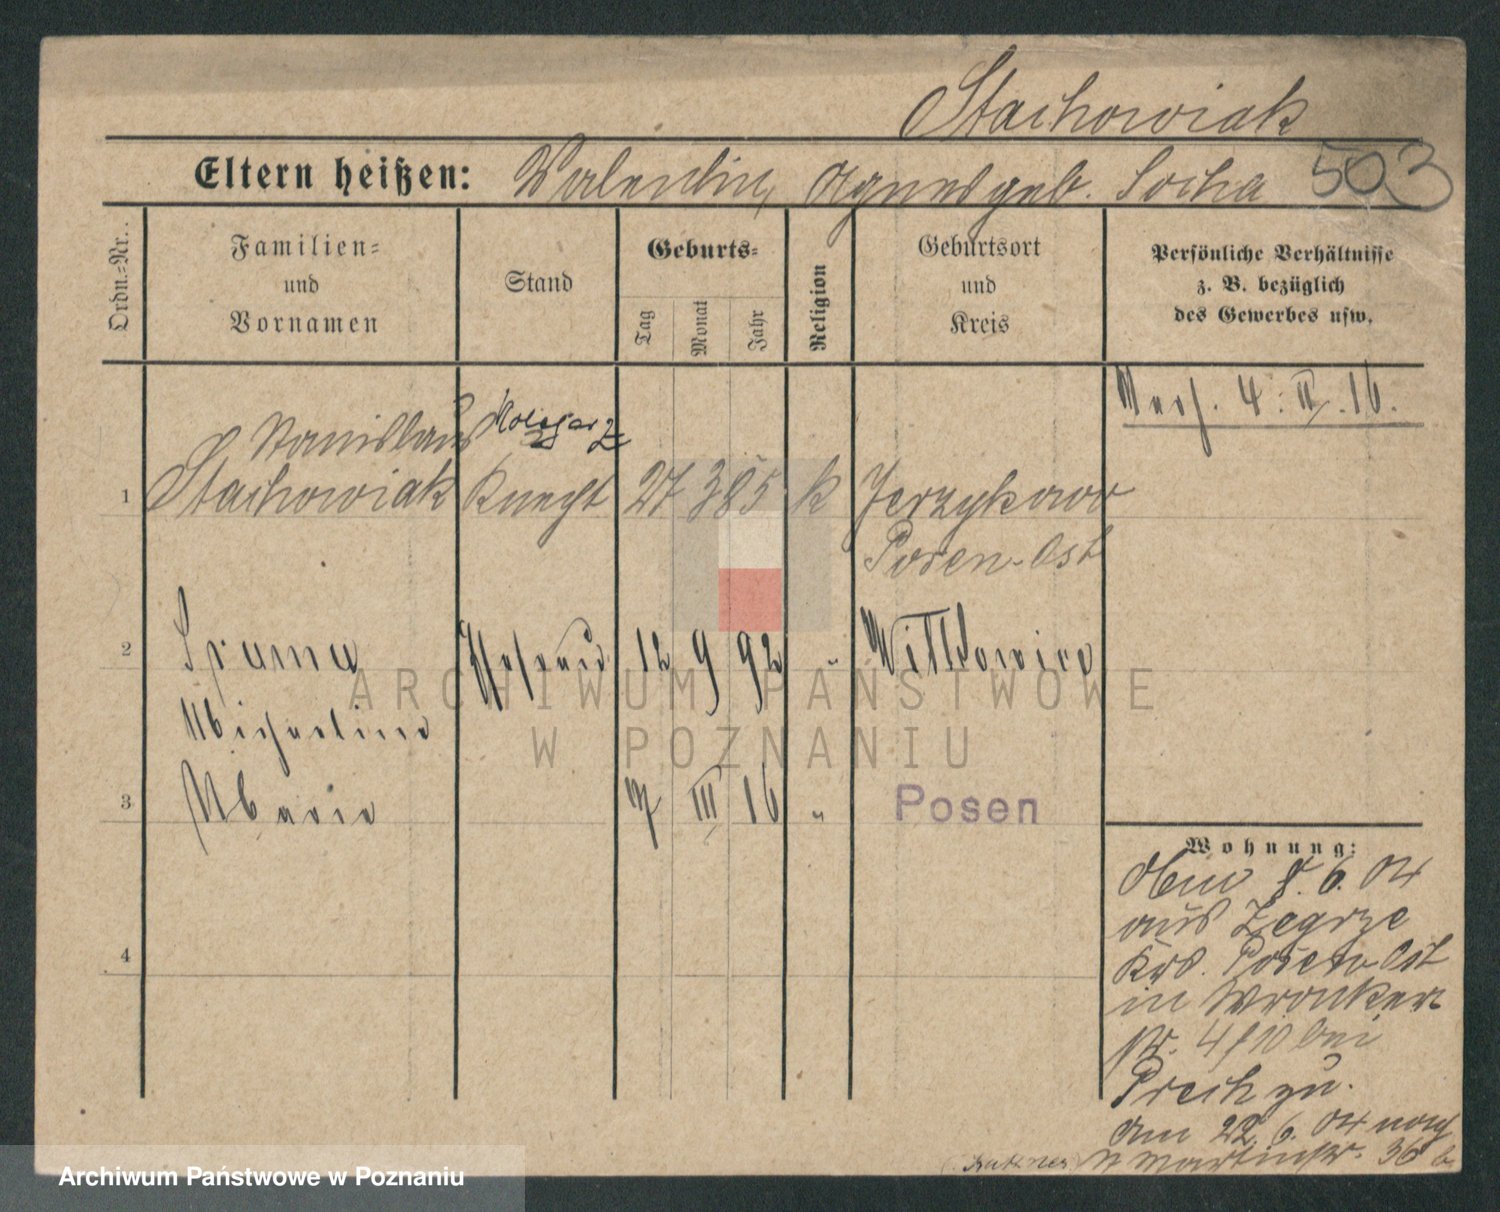 Stachowiak
503
Eltern heißen: Valentin, Agnes geb. Socha
Ordn.-Nr.
Familien-
und
Vornamen
Stand
Geburts-
Tag
Monat
Jahr
Religion
Geburtsort
und
Kreis
Persönliche Verhältnisse
z. B. bezüglich
des Gewerbes usw.
4. II. 16.
Stanislaus
1 Stachowiak Knecht 27 3 85 k Jerzykowo
Posen-Ost
2 12 9 92 "
Michaelina
3 Maria 7 III 16 " Posen
4
Wohnung:
8. 6. 04
aus Zegrze
Krs. Posen Ost
in Wronker
str. 4/10 bei
zu.
Am 22. 6. 04 nach
Martinstr. 36
ARCHIWUM PAŃSTWOWE
W POZNANIU
Archiwum Państwowe w Poznaniu